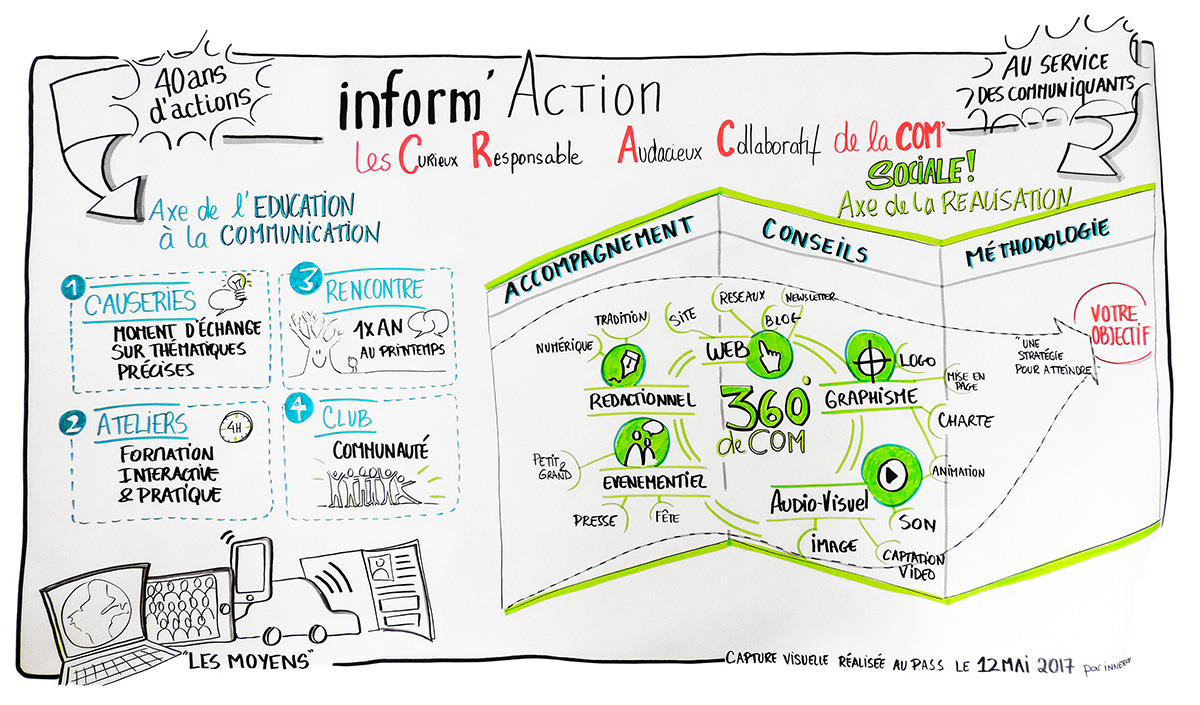 40 ans
d'actions
inform' Action
AU SERVICE
DES COMMUNIQUANTS
Les Curieux Responsable Audacieux Collaboratif de la COM'
SOCIALE!
Axe de l'EDUCATION
à la COMMUNICATION
1
CAUSERIES
MOMENT D'ÉCHANGE
SUR THÉMATIQUES
PRÉCISES
3
RENCONTRE
1X AN
AU PRINTEMPS
2
ATELIERS
4H
FORMATION
INTERACTIVE
& PRATIQUE
4
CLUB
COMMUNAUTÉ
"LES MOYENS"
Axe de la REALISATION
ACCOMPAGNEMENT
CONSEILS
MÉTHODOLOGIE
NUMÉRIQUE
TRADITION
REDACTIONNEL
SITE
RESEAUX
NEWSLETTER
BLOG
WEB
LOGO
MISE EN
PAGE
GRAPHISME
CHARTE
360°
de COM
PETIT &
GRAND
EVENEMENTIEL
PRESSE
FÊTE
ANIMATION
AUDIO-VISUEL
SON
IMAGE
CAPTATION
VIDEO
"UNE
STRATÉGIE
POUR ATTEINDRE
VOTRE
OBJECTIF
CAPTURE VISUELLE RÉALISÉE AU PASS LE 12 MAI 2017 par